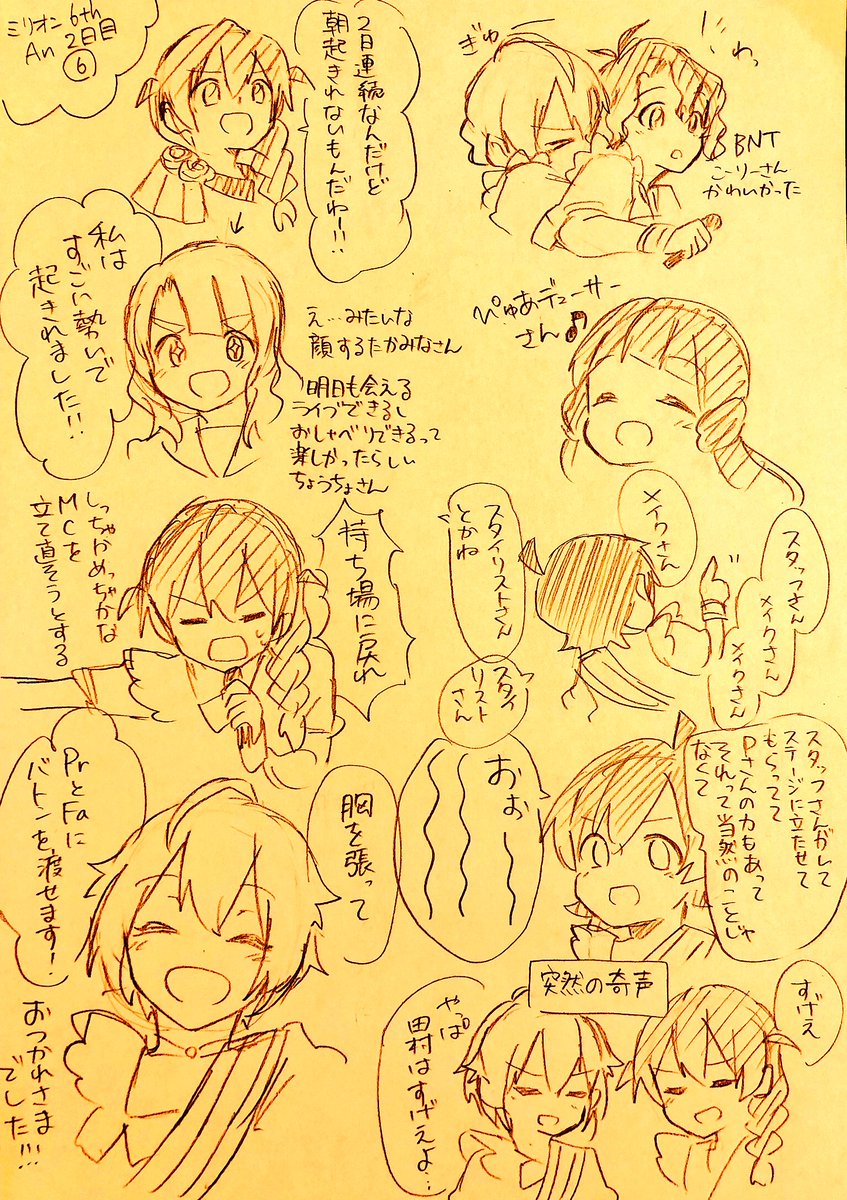 ミリオン6th
An 2日目
⑥
2日連続なんだけど
朝起きれないもんだねー!!
私は
すごい勢いで
起きれました!!
え…みたいな
顔するたかみなさん
明日も会える
ライブできるし
おしゃべりできるって
楽しかったらしい
ちょうちょさん
しっちゃかめっちゃかな
MCを
立て直そうとする
持ち場に戻れ
胸を張って
PrとFaに
バトンを渡せます!
おつかれさま
でした!!!
ぎゅ
わっ
BNT
こーりーさん
かわいかった
ぴゅあデューサー
さん♪
スタッフさん
メイクさん
メイクさん
メイクさん
スタイリストさん
とかね
スタイ
リスト
さん
スタッフさんがいて
ステージに立たせて
もらってて
Pさんの力もあって
それって当然のことじゃ
なくて
おぉー
突然の奇声
すげえ
やっぱ
田村はすげえよ…